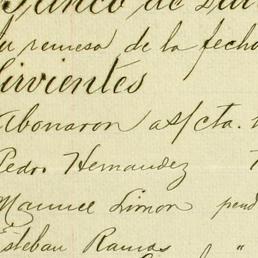 Banco de
su remesa de la fecha
Sirvientes
Abonaron as/cta.
Pedro Hernandez
Manuel Limon pend
Esteban Ramos "